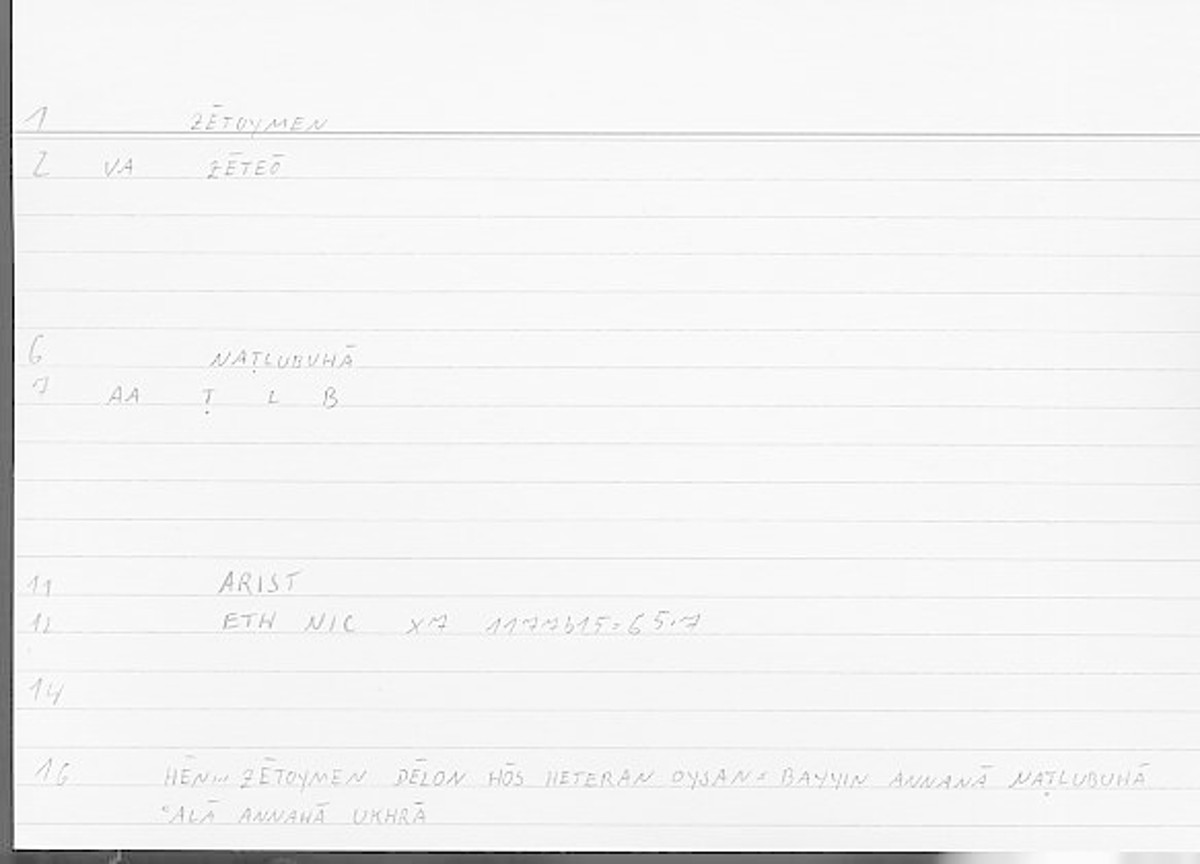 1 ZĒTOYMEN
2 VA ZĒTEŌ
6 NAṬLUBUHĀ
7 AA Ṭ L B
11 ARIST
12 ETH NIC X7 1177b15=65.7
14
16 HĒN... ZĒTOYMEN DĒLON HŌS HETERAN OYSAN= BAYYIN ANNANĀ NAṬLUBUHĀ
ʿALĀ ANNAHĀ UKHRĀ